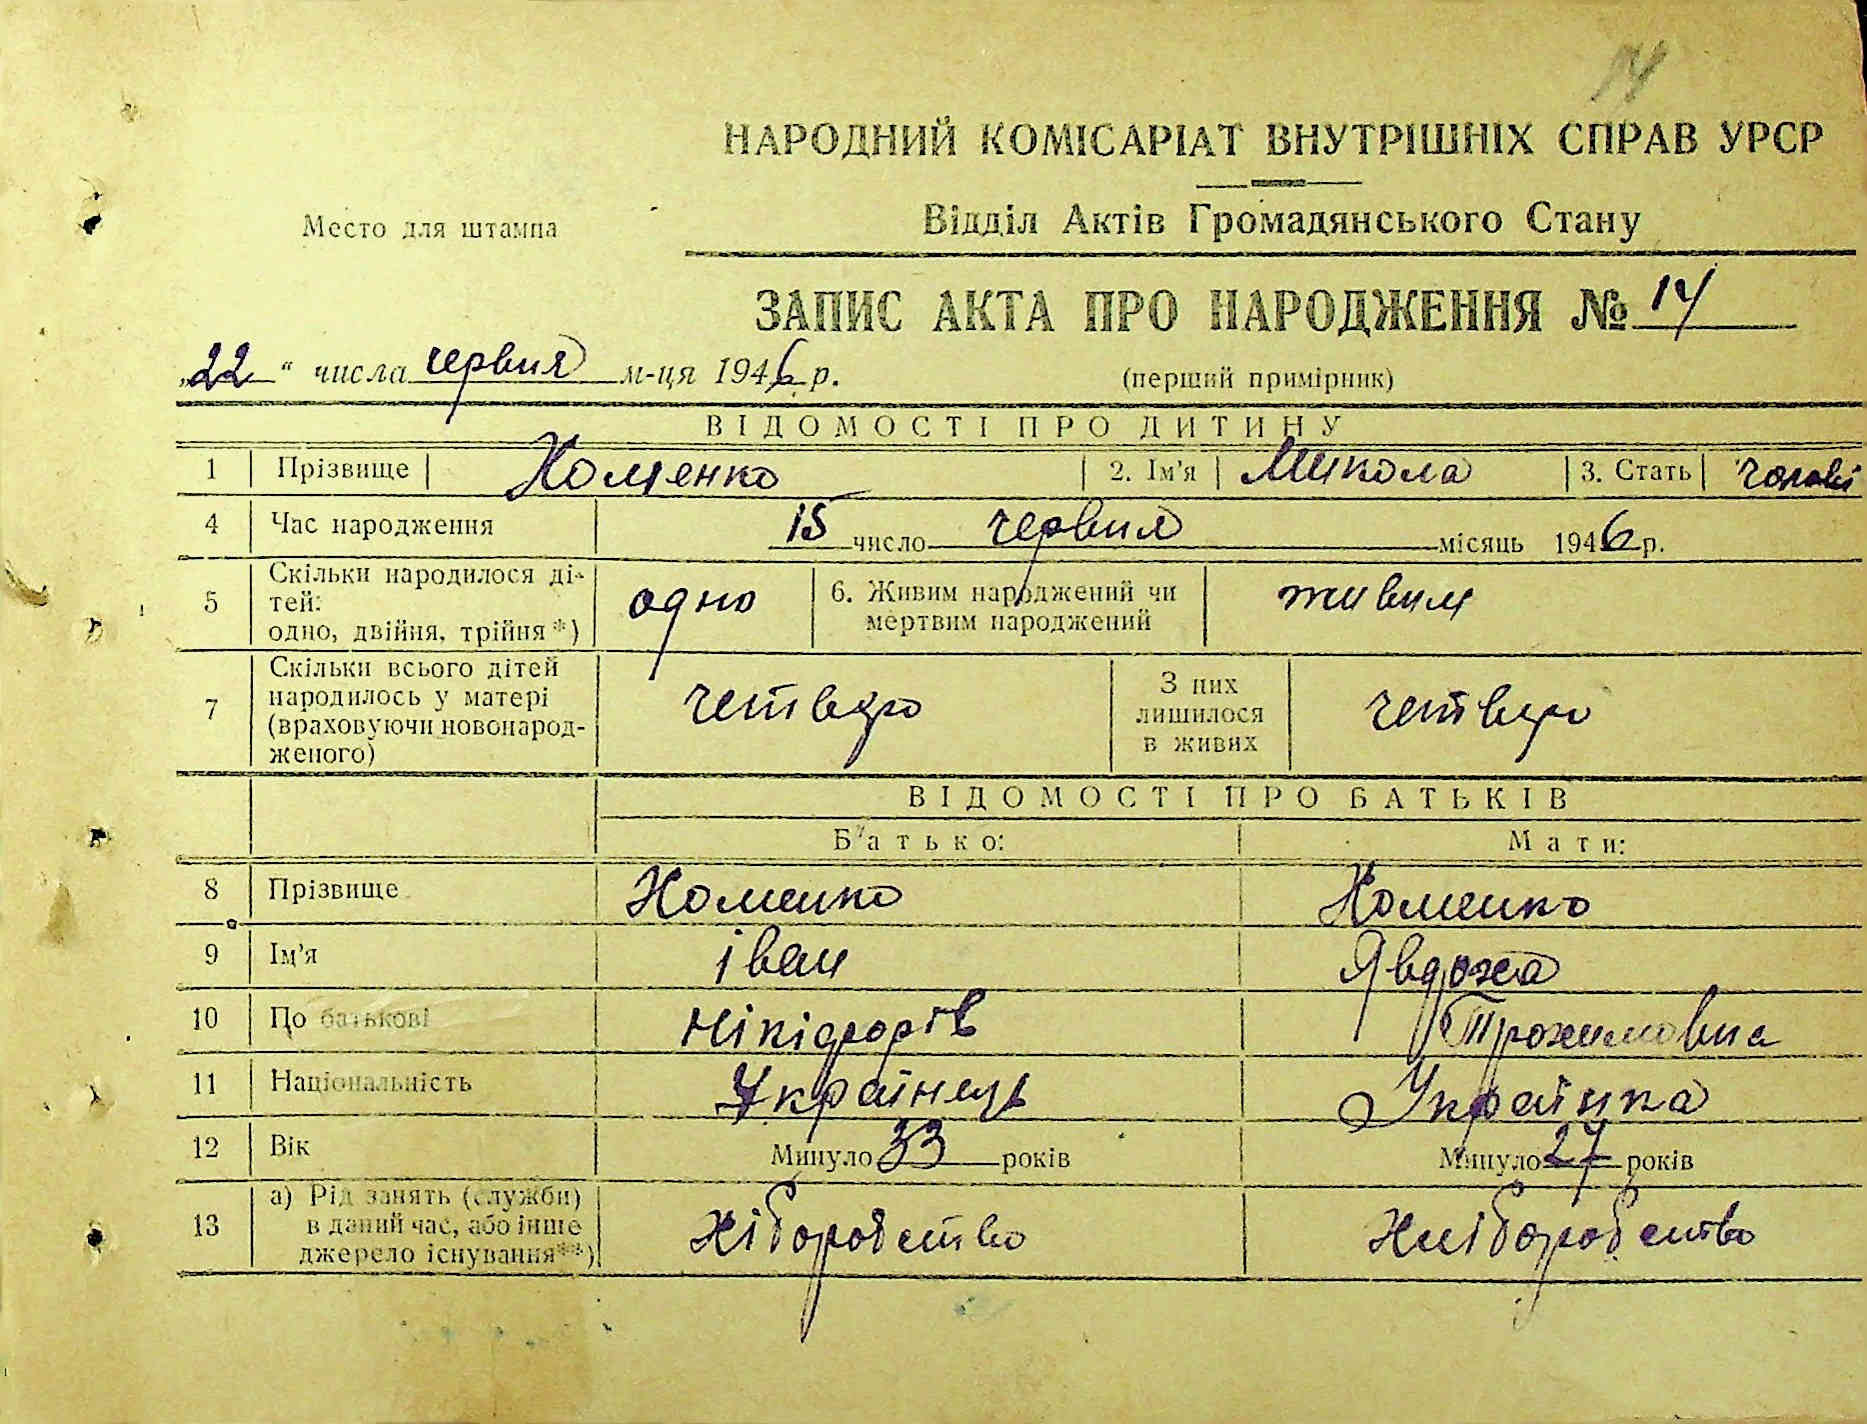 14
НАРОДНИЙ КОМІСАРІАТ ВНУТРІШНІХ СПРАВ УРСР
Место для штампа
Відділ Актів Громадянського Стану
ЗАПИС АКТА ПРО НАРОДЖЕННЯ № 14
„22" числа червня м-ця 1946 р.
(перший примірник)
ВІДОМОСТІ ПРО ДИТИНУ
1 Прізвище Хоменко 2. Ім'я Микола 3. Стать чолові
4 Час народження 15 число червня місяць 1946 р.
5 Скільки народилося ді-
тей:
одно, двійня, трійня *) одно 6. Живим народжений чи
мертвим народжений живим
7 Скільки всього дітей
народилось у матері
(враховуючи новонарод-
женого) четверо З них
лишилося
в живих четверо
ВІДОМОСТІ ПРО БАТЬКІВ
Батько: Мати:
8 Прізвище Хоменко Хоменко
9 Ім'я Іван Явдоха
10 По батькові Нікіфорів Трохимовна
11 Національність Українець Українка
12 Вік Минуло 33 років Минуло 27 років
13 а) Рід занять (служби)
в даний час, або інше
джерело існування**) хіборобство Хліборобство